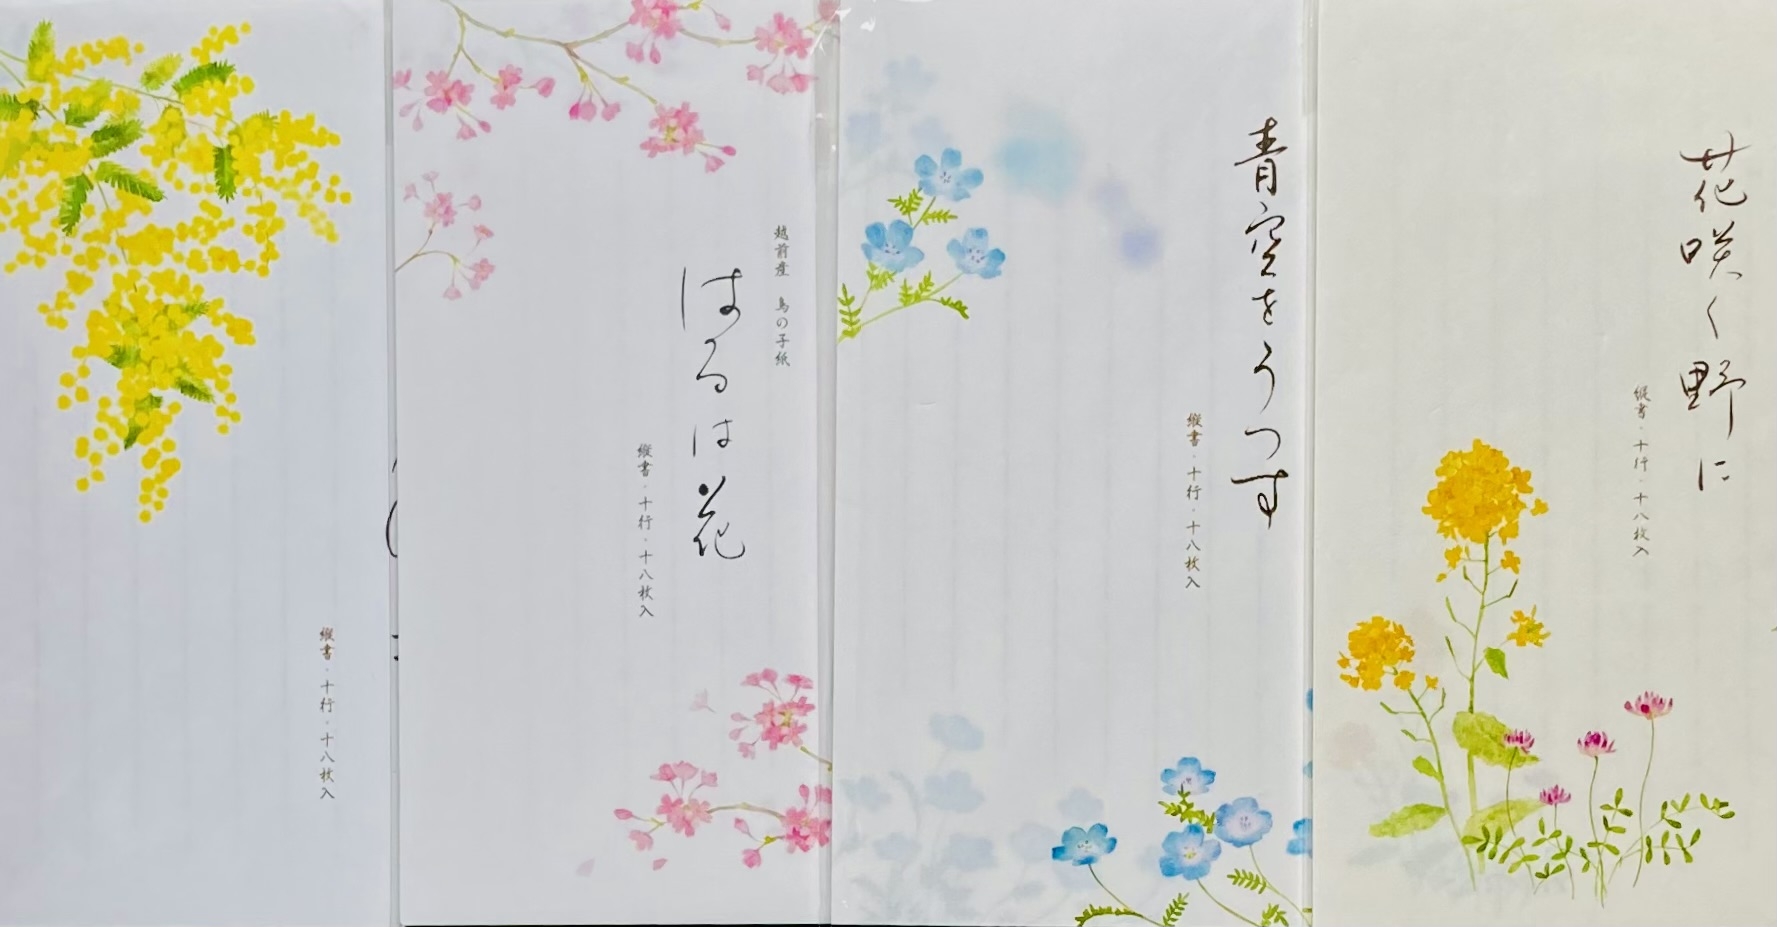 花咲く野に
縦書・十行・十八枚入
青空をうつす
縦書・十行・十八枚入
越前産 鳥の子紙
はるは花
縦書・十行・十八枚入
縦書・十行・十八枚入